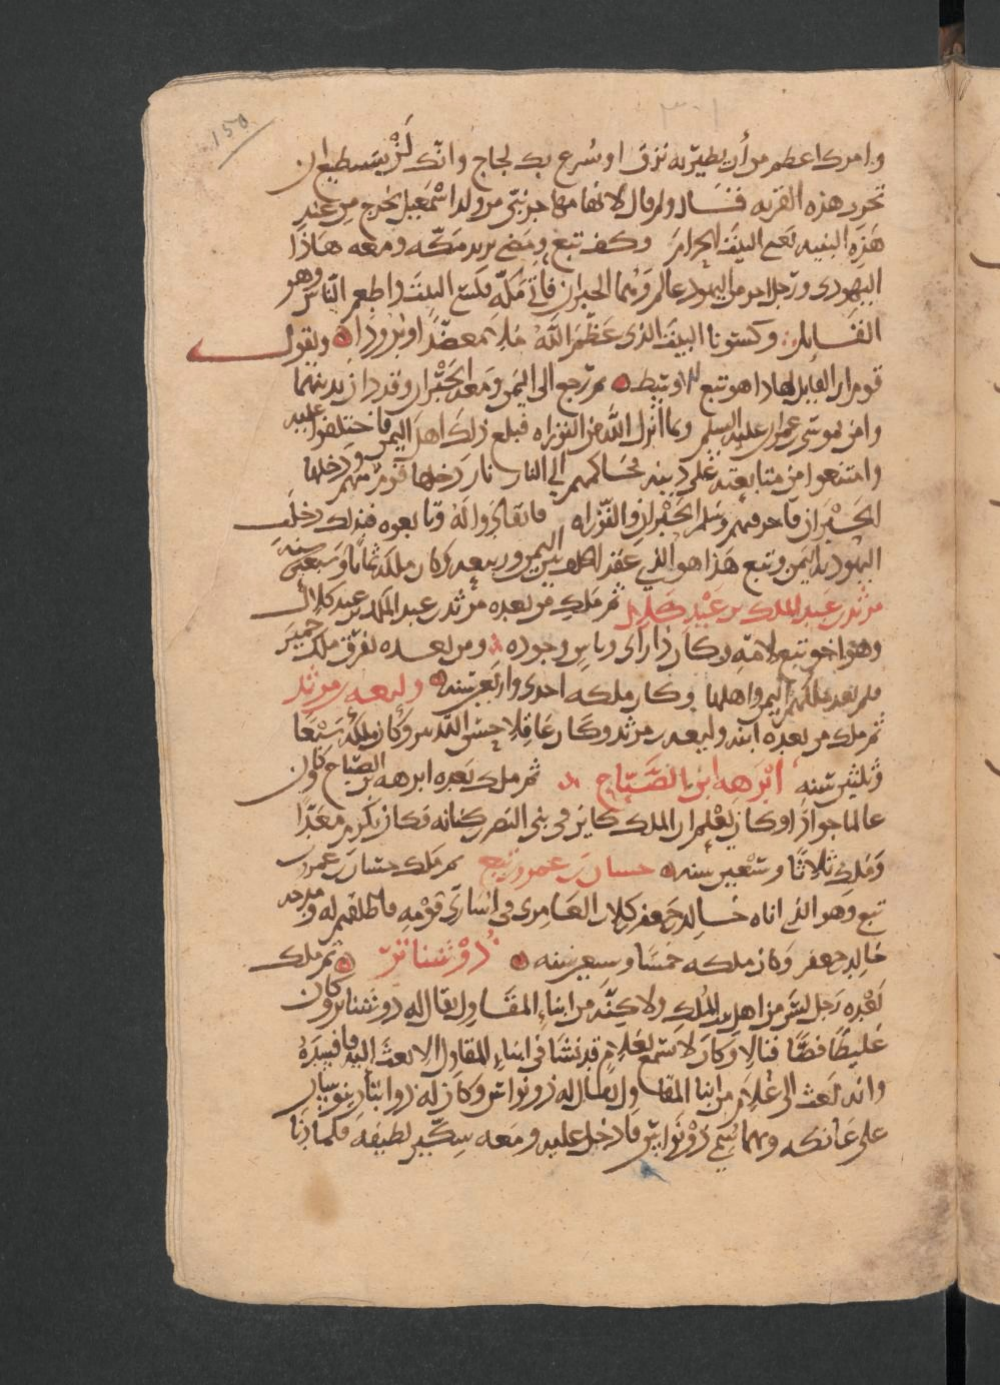 150
وامرك اعظم من أن يطير به نزق او سُرع بك لجاج وانّك لَنْ يستطيع ان
تخرب هذه القريه فقال ولم قال لانها مهاجر نبيّ من ولد اسْمعيل يخرج من عند
هَذِه البنيه يَعني البيتَ الحرامَ وكف تبع ومَضى يريد مكّه ومعه هاذَا
اليهودى ورَجل اخر من اليهود عالم وَهُما الحبران فاتى مَكّه فكسَى البيتَ واطعم النّاسَ وهو
القَايل وكسَونا البيتَ الذى عَظّمَ اللّهُ مُلاءً معضّدًا وبُرودَا ويقول
قوم ان القايل لهاذا هو تبع الاوسط ثم رَجع الى اليمَن ومَعه الحَبْران وقد دان بدينهما
وامن بموسَى بن عمران عليه السلم وبما انزل اللّه من التوزاه فبلغ ذلك اهلَ اليمن فاختلفوا عليه
وامتنعوا من متابعته عَلى دينه فحَاكمهم الى النار نار دَخلها قوم منهم ودخلها
الحَبْران فاحرقتهم وسَلم الحَبْران والتّوْراه فانقادوا لهُ وتابعوه فبذلك دخلت
اليهوديه اليمن وتبع هَذا هو الذى عَقد الحلف بين اليمن وربيعه وكان ملكه ثمانا وسَبعين سنه
مرثد بن عَبد الملك بن عَبْد كلال ثم مَلك من بعده مرثد بن عبد الملك بن عبد كلال
وهو اخو تبع لامّه وكان ذا رَاى وباس وجوده ومن بعده تفرّق ملك حِميَر
فلم يعد ملكهم اليمن واهلها وكان ملكه احدى واربعين سَنه وليعه بن مرثد
ثم ملك من بعده ابنه وليعه بن مرثد وكان عَاقلا حسَن التدبير وكان ملكهُ سَبْعًا
وثلثين سَنه ابْرهه ابن الصَّبّاح ثم ملك بَعده ابرهه بن الصّباح وكان
عالما جوادًا وكان يَعْلم ان الملك كاين فى بنى النضر بن كنانه فكان يكرم معَدّا
وَمَلك ثلاثًا وسَبْعين سنه حسان بن عمرو بن تبع ثم مَلك حسّان بن عمرو بن
تبع وَهو الذى اتاه خَالد بن جَعفر بن كلاب العَامرى فى اسَارَى قَوْمِه فاطلقهم له ومدحه
خَالد بن جعفر وَكان ملكه خمسَا وسبعين سَنه ذُوْ شناتر ثم ملك
بَعْده رَجل ليسَ من اهل بيت المُلك ولاكِنّه من ابناءِ المقَاول يقال له ذو شناتر وكان
غليظًا فظًّا قتالا وَكانَ لا يَسمع بغلام قد نشَا فى ابناءِ المقاول الا بعثَ اليه فافسَده
وانه بَعث الى غلام من ابنا المقاول يقال له ذو نواس وكان له ذوابتان ينوسان
على عَاتكه وبهما سُمّى ذوْ نَواسٍ فادخل عليه ومعَه سِكّين لطيفَه فلما دنَا